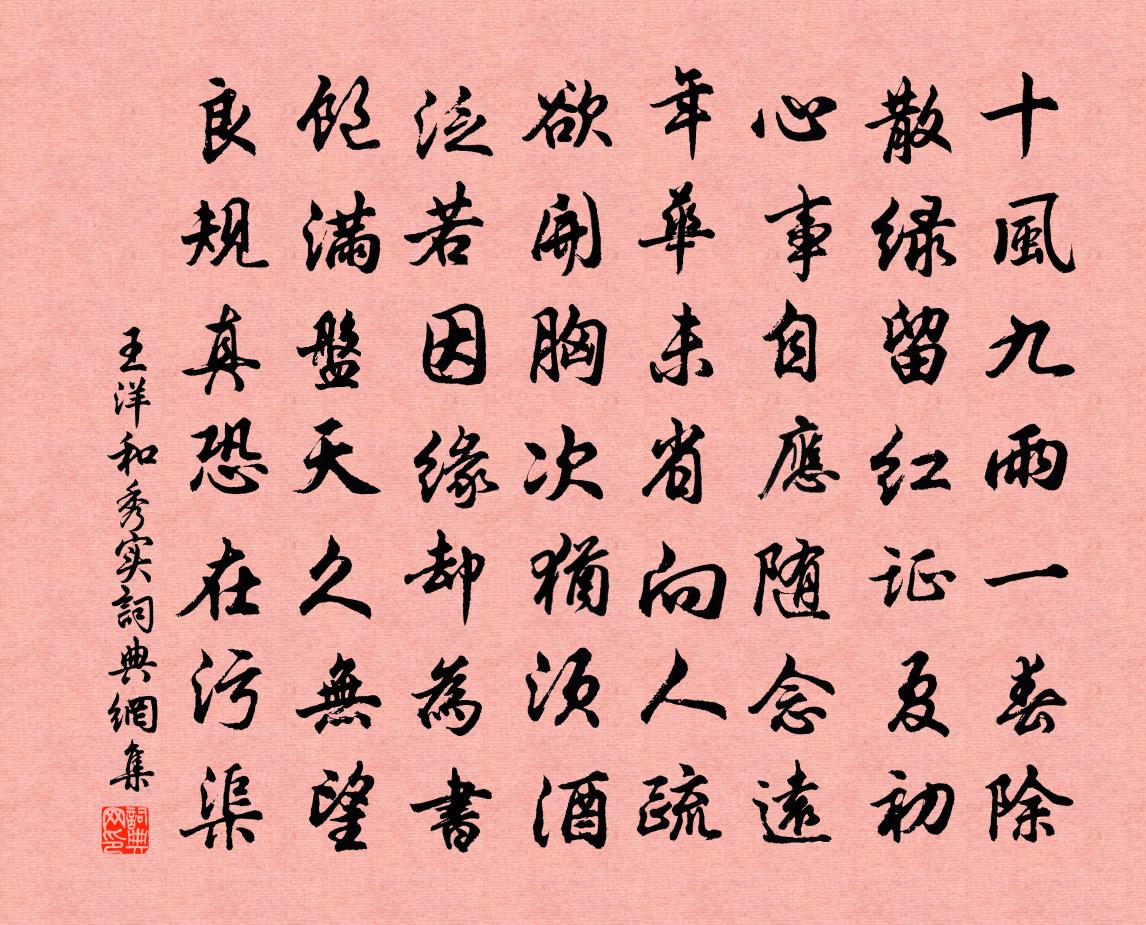 十風九雨一春除
散绿留红证夏初
心事自應随念遠
年華未省向人疏
欲開胸次猶須酒
泛若因缘却為書
飽滿盤天久無望
良规真恐在污渠
王洋和秀实詞典網集
詞典网印